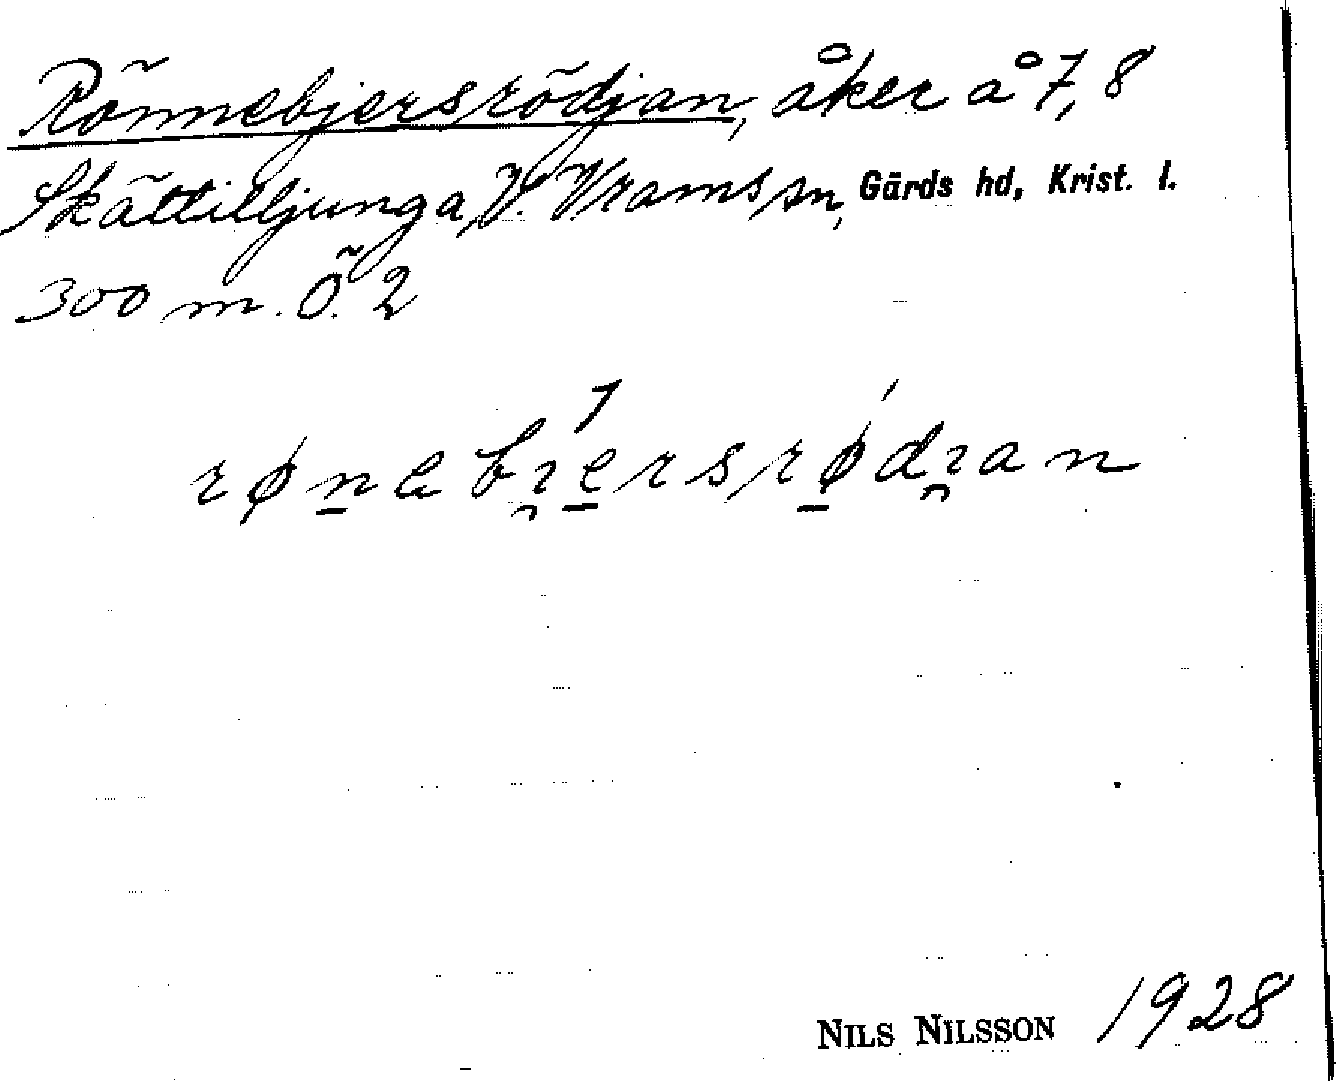 Rönnebjersrödjan, åker å 7, 8
Skättilljunga, V. Vrams sn, Gärds hd, Krist. l.
300 m. Ö. 2
rønebi̯ersrødi̯an
NILS NILSSON 1928